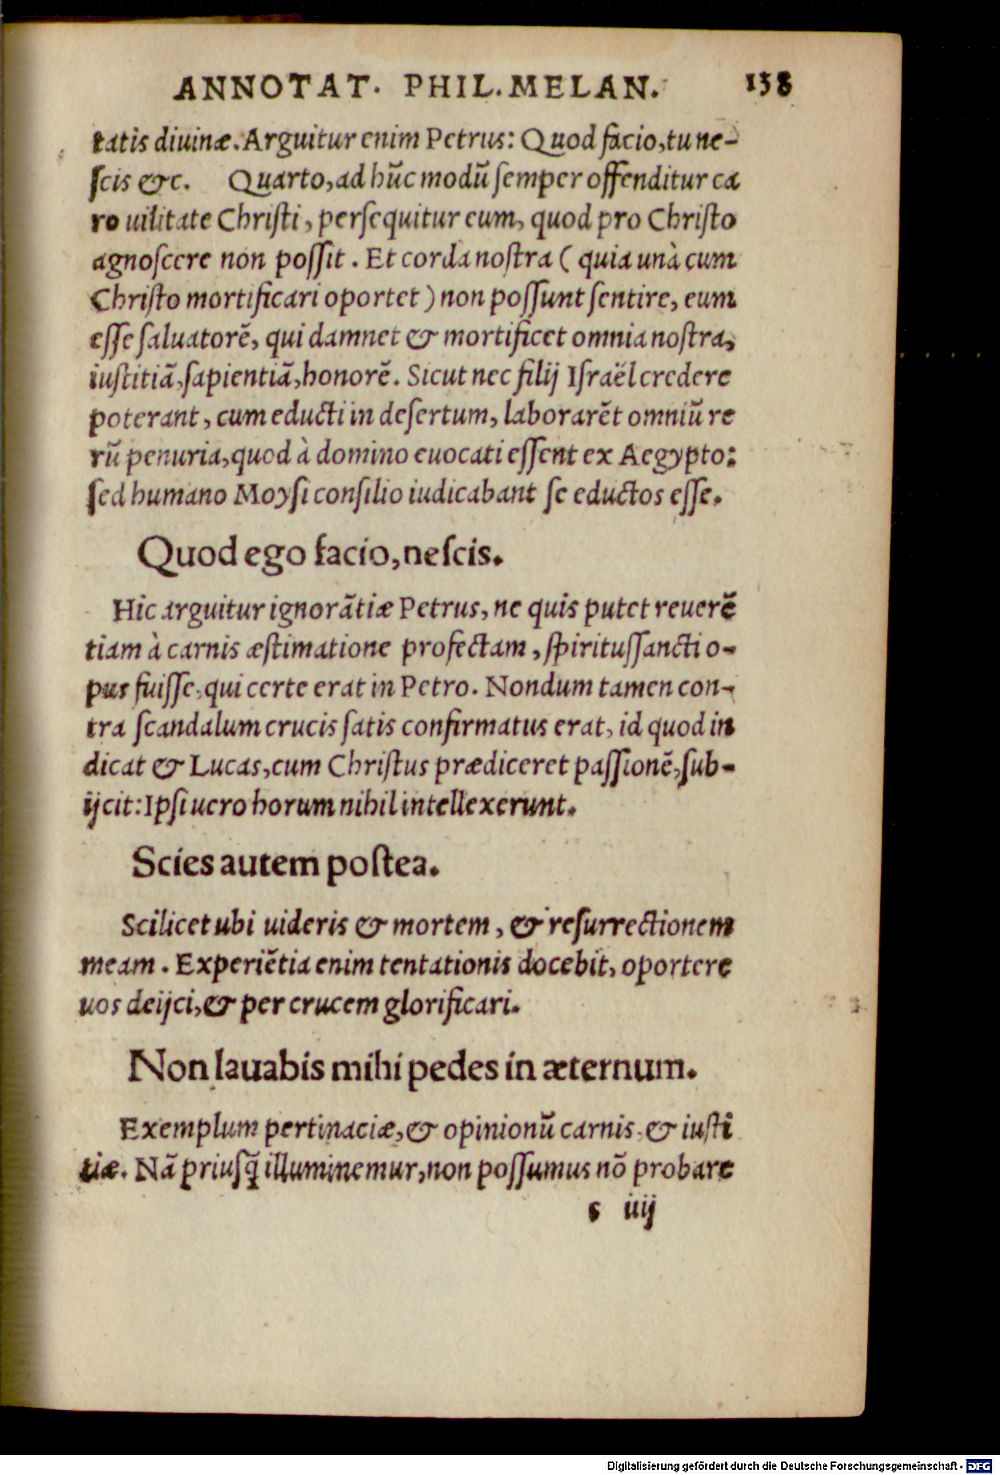 ANNOTAT. PHIL. MELAN. 138
tatis diuinæ. Arguitur enim Petrus: Quod facio, tu ne-
ſcis &c. Quarto, ad hũc modũ ſemper offenditur ca
ro uilitate Chriſti, perſequitur eum, quod pro Chriſto
agnoſcere non poſſit. Et corda noſtra ( quia unà cum
Chriſto mortificari oportet ) non poſſunt ſentire, eum
eſſe ſaluatorẽ, qui damnet & mortificet omnia noſtra,
iuſtitiã, ſapientiã, honorẽ. Sicut nec filij Iſraël credere
poterant, cum educti in deſertum, laborarẽt omniũ re
rũ penuria, quod à domino euocati eſſent ex Aegypto:
ſed humano Moyſi conſilio iudicabant ſe eductos eſſe.
Quod ego facio, neſcis.
Hic arguitur ignorãtiæ Petrus, ne quis putet reuerẽ
tiam à carnis æſtimatione profectam, ſpirituſſancti o-
pus fuiſſe, qui certe erat in Petro. Nondum tamen con-
tra ſcandalum crucis ſatis confirmatus erat, id quod in
dicat & Lucas, cum Chriſtus prædiceret paſſionẽ, ſub-
ijcit: Ipſi uero horum nihil intellexerunt.
Scies autem poſtea.
Scilicet ubi uideris & mortem, & reſurrectionem
meam. Experiẽtia enim tentationis docebit, oportere
uos deijci, & per crucem glorificari.
Non lauabis mihi pedes in æternum.
Exemplum pertinaciæ, & opinionũ carnis, & iuſti
tiæ. Nã priuſq̃ illuminemur, non poſſumus nõ probare
s iiij
Digitalisierung gefördert durch die Deutsche Forschungsgemeinschaft - DFG